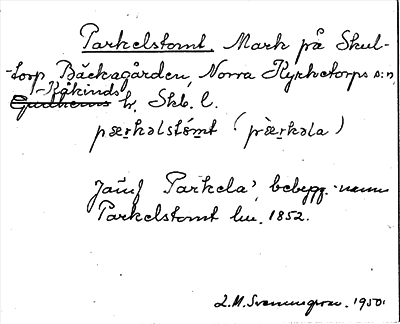 Parkelstomt. Mark på Skul-
torp, Bäckagården, Norra Kyrketorps s:n,
Kåkinds
Gudhems h. Skb. l.
pæṟkəlstómt (pæ̀ṟkəla)
Jämf Parkela, bebygg.-namn
Parkelstomt lm. 1852.
L.M. Svenungsson. 1950.